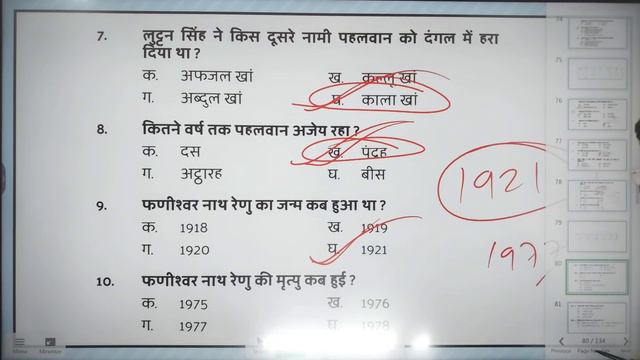 7. लुट्टन सिंह ने किस दूसरे नामी पहलवान को दंगल में हरा
दिया था ?
क. अफजल खां ख. कल्लू खां
ग. अब्दुल खां घ. काला खां
8. कितने वर्ष तक पहलवान अजेय रहा ?
क. दस ख. पंद्रह
ग. अट्ठारह घ. बीस
9. फणीश्वर नाथ रेणु का जन्म कब हुआ था ?
क. 1918 ख. 1919
ग. 1920 घ. 1921
1921
10. फणीश्वर नाथ रेणु की मृत्यु कब हुई ?
क. 1975 ख. 1976
ग. 1977 घ. 1978
75
76
77
78
79
80
81
80 / 134
Menu Minimize Previous Next